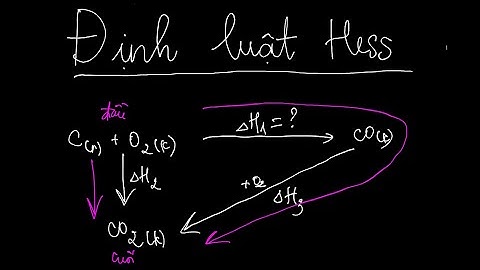 Định luật Hess
đầu
C(r) + O₂(k) ΔH₁ = ? CO(k)
ΔH₂ +O₂ ΔH₃
CO₂(k)
cuối